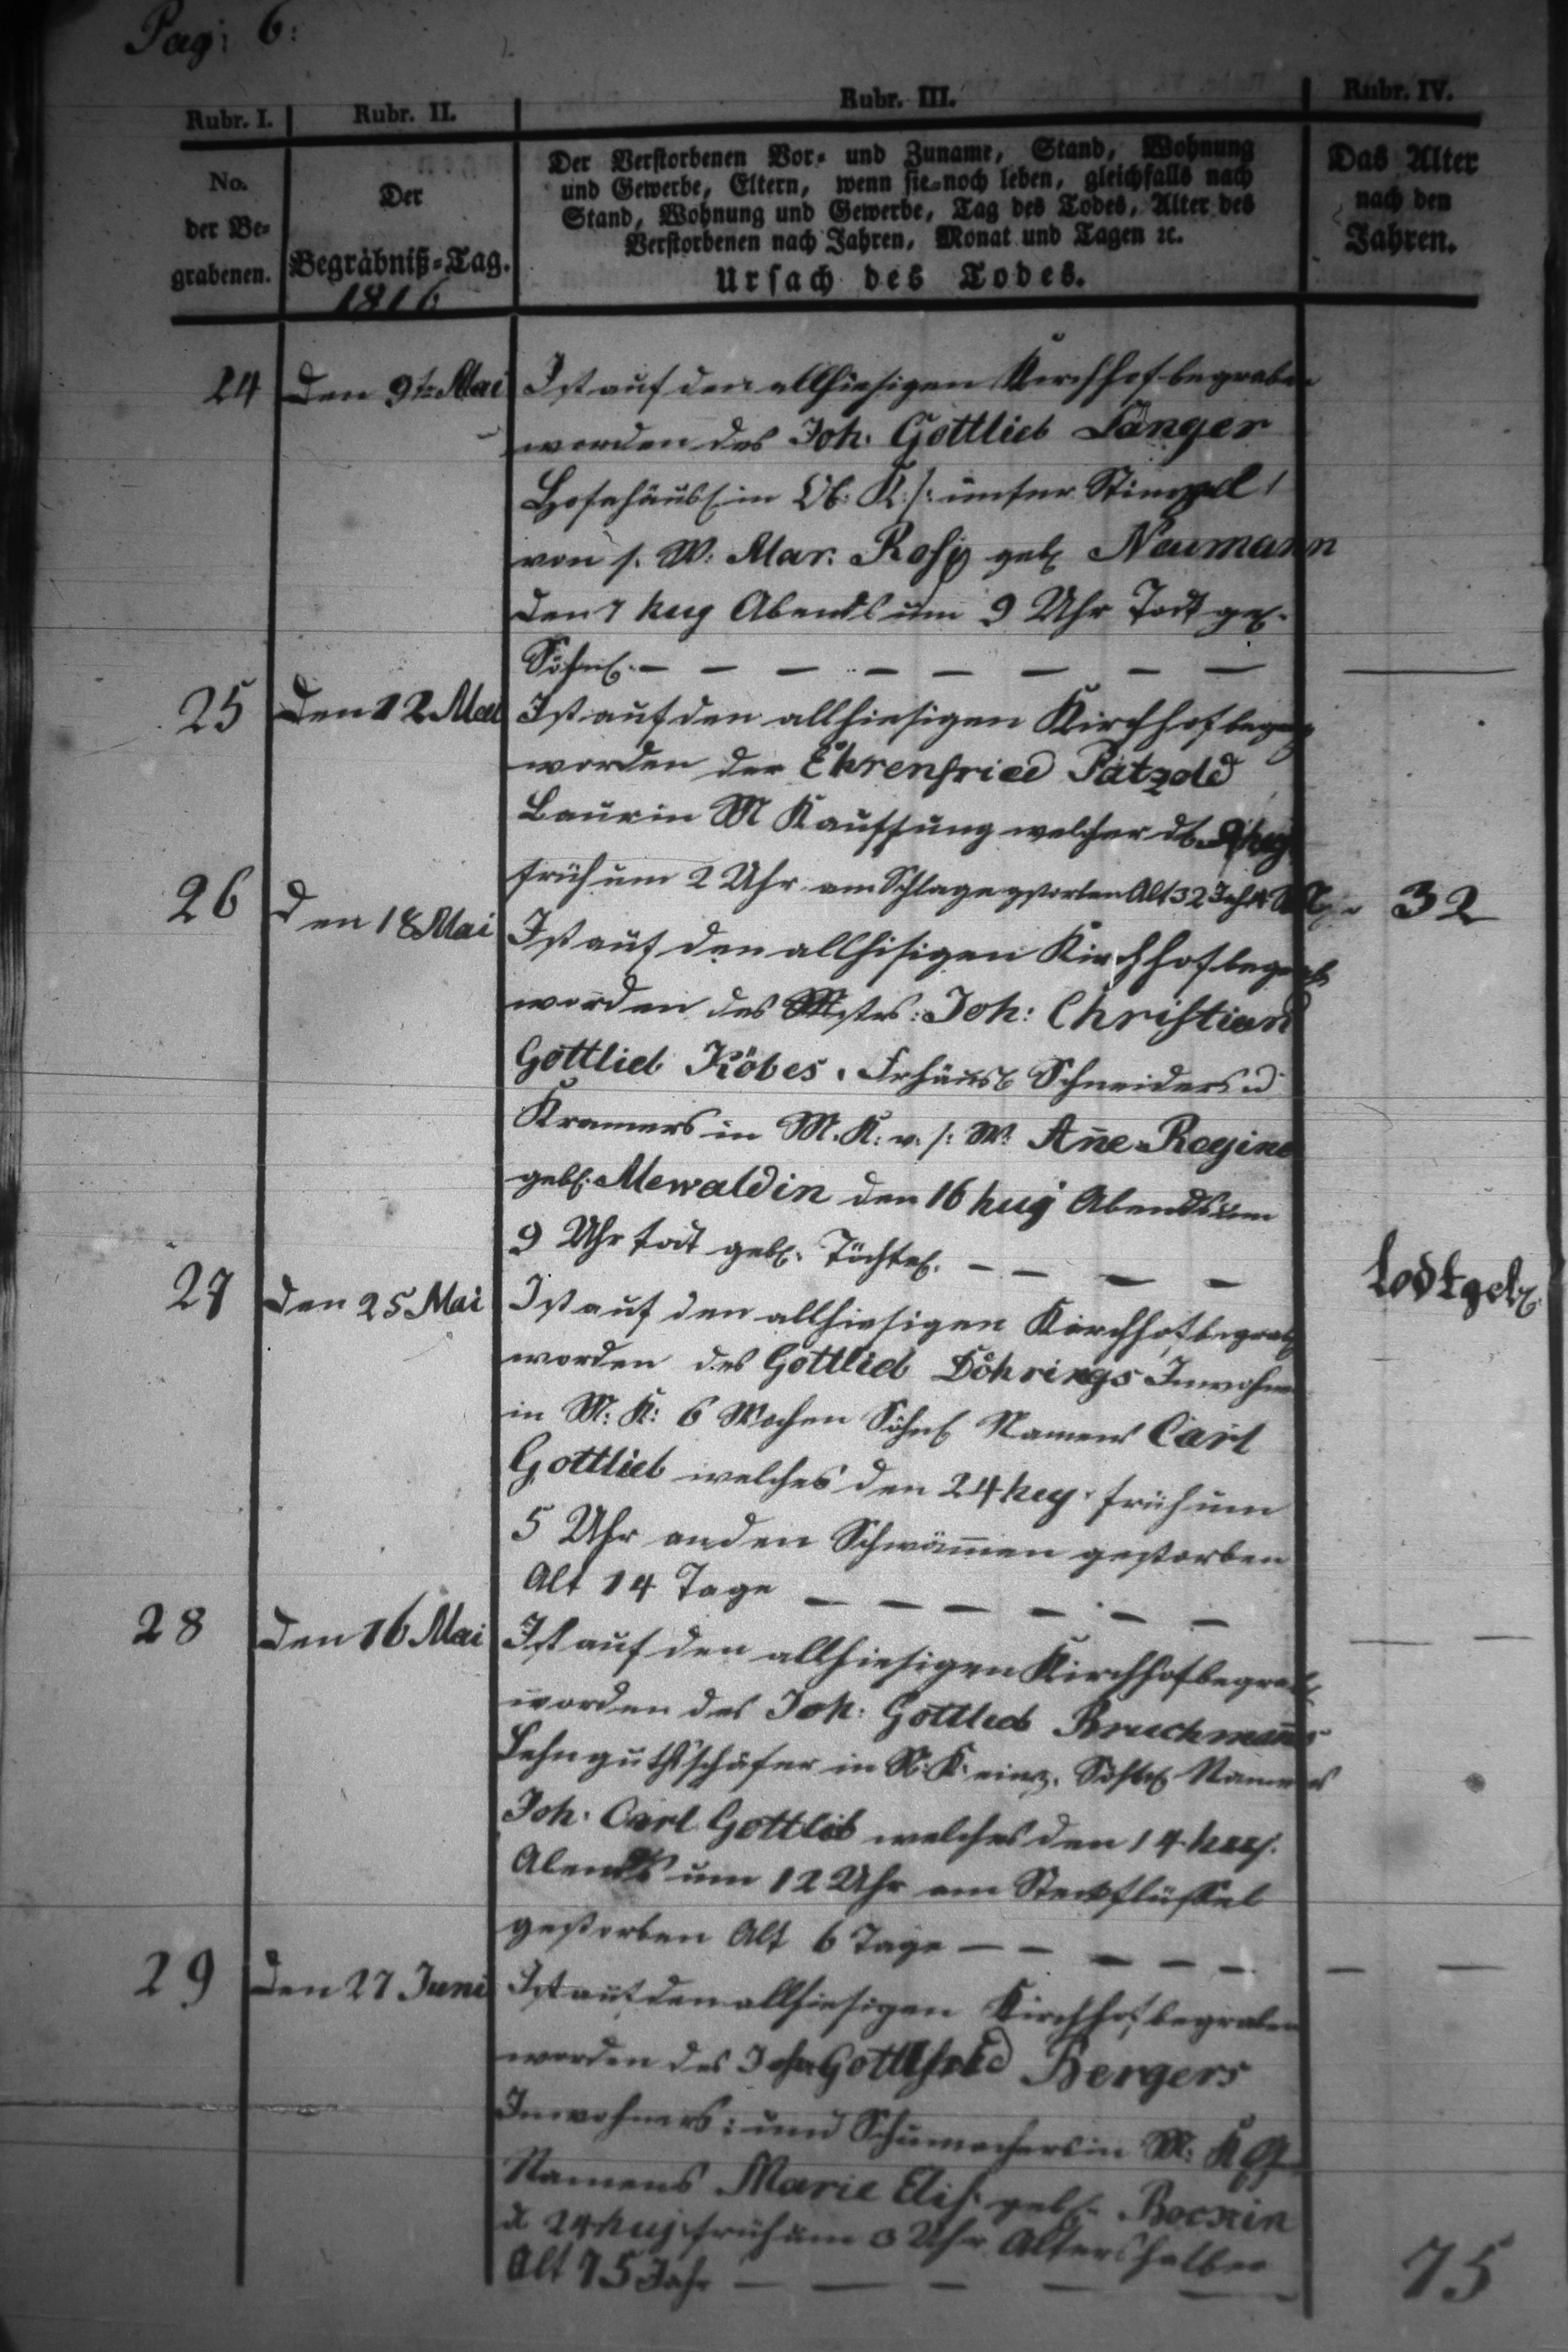 Pag: 6:
Rubr. I.
Rubr. II.
Rubr. III.
Rubr. IV.
No.
der Be-
grabenen.
Der
Begräbniß-Tag.
1816
Der Verstorbenen Vor- und Zuname, Stand, Wohnung
und Gewerbe, Eltern, wenn sie noch leben, gleichfalls nach
Stand, Wohnung und Gewerbe, Tag des Todes, Alter des
Verstorbenen nach Jahren, Monat und Tagen ꝛc.
Ursach des Todes.
Das Alter
nach den
Jahren.
24 Den 9te Mai Ist auf den allhiesigen Kirchhof begraben
worden des Joh. Gottlieb Länger
Hofehäusl. in Ob. K. /:
von s. W. Mar. Rosin geb. Neumann
den 7 huj Abends um 9 Uhr Todt geb.
Söhnl.
25 Den 12 Mai Ist auf den allhiesigen Kirchhof begr.
worden der Ehrenfried Pätzold
Baur in M Kauffung welcher d.
früh um 2 Uhr am Schlage gestorben Alt 32 Jahr 32
26 Den 18 Mai Ist auf den allhisigen Kirchhof begrab.
worden des Mstrs: Joh: Christian
Gottlieb Köbes. Frhäusl Schneiders u
Kramers in M. K: v. s: W. Añe Regine
geb. Mewaldin den 16 huj Abends um
9 Uhr todt geb. Töchterl. todt geb.
27 Den 25 Mai Ist auf den allhiesigen Kirchhof begrab
worden des Gottlieb Döhrings Inwohn
in M: K: 6 Wochen Söhnl Namens Carl
Gottlieb welches den 24 huj. früh um
5 Uhr an den Schwäm̃en gestorben
Alt 14 Tage
28 Den 16 Mai Ist auf den allhiesigen Kirchhof begrab
worden des Joh: Gottlieb Bruchmañs
Lehnguthsschäfer in N: K. einz. Söhnl Namens
Joh. Carl Gottlieb welches den 14 huj.
Abends um 12 Uhr am Steckflüssel
gestorben Alt 6 Tage
29 Den 27 Juni Ist auf den allhiesigen Kirchhof begraben
worden des Joh. Gottfried Bergers
Inwohners: und Schumachers in M: K
Namens Marie Elis. geb.
d 24 huj. früh um 3 Uhr Altershalber
Alt 75 Jahr 75